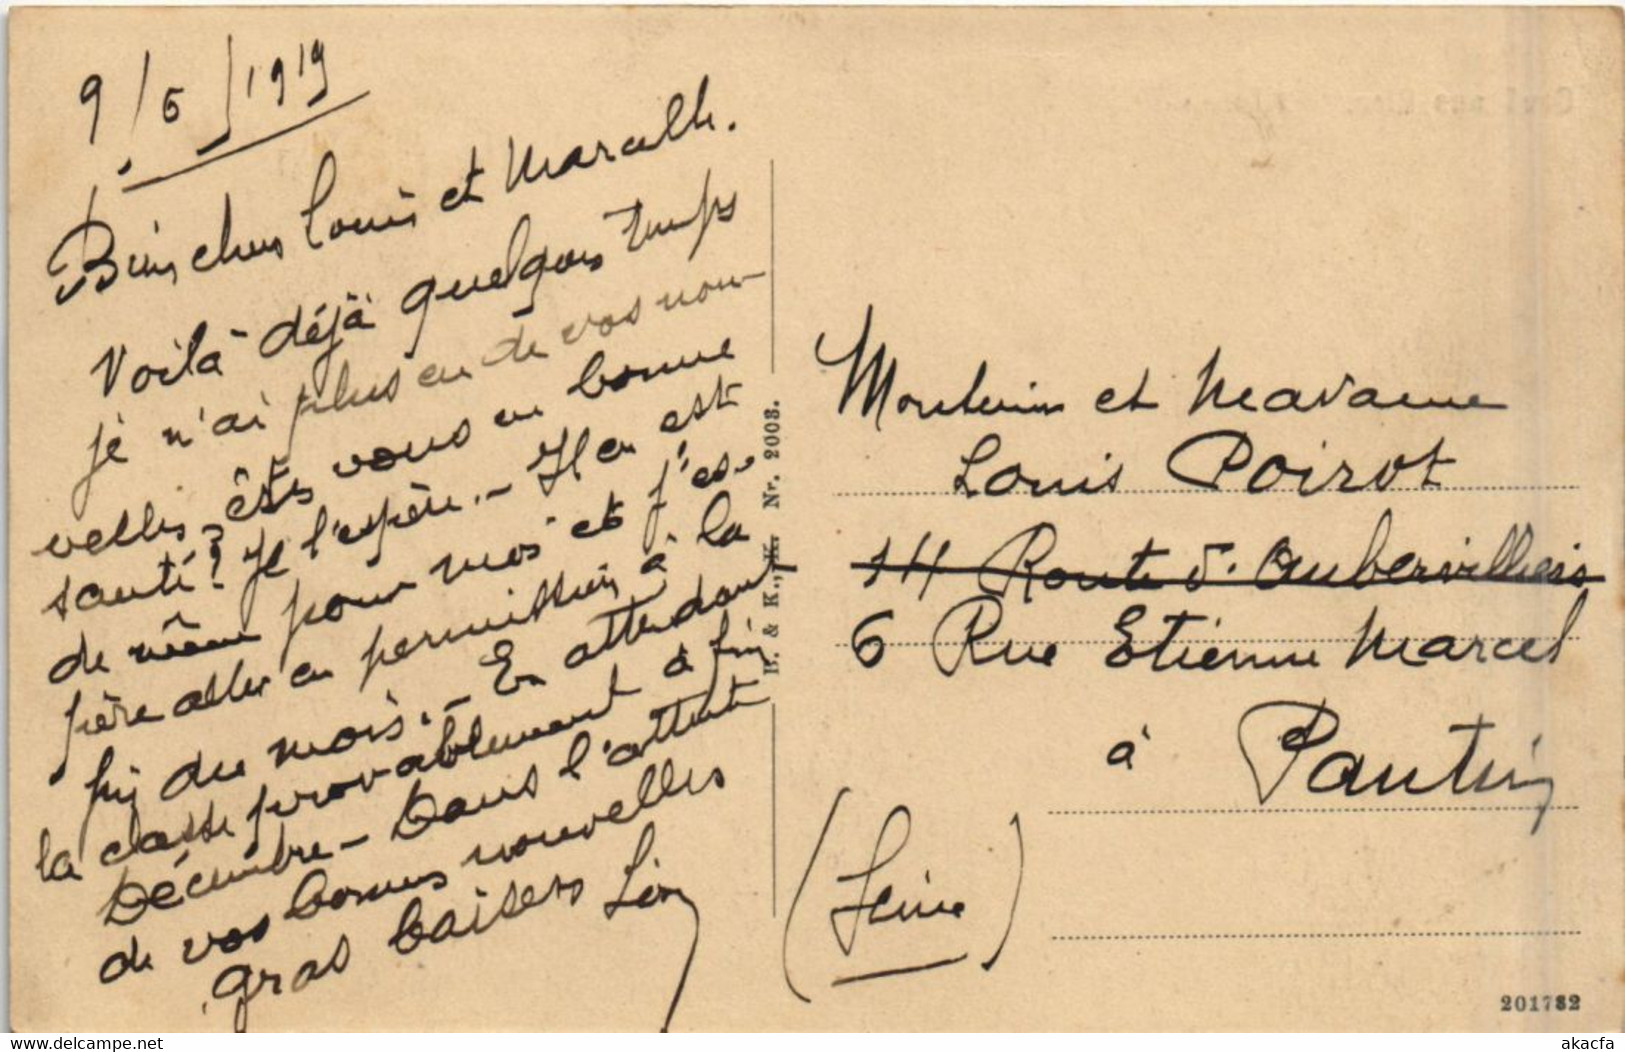 9/6/1919
Bien chers Louis et Marcelle.
Voilà déjà quelques temps
je n'ai plus eu de vos nou-
velles, êtes vous en bonne
santé? Je l'espère. - Il en est
de même pour moi et j'es-
père aller en permission à la
fin du mois. - En attendant
la classe provablement à fin
Décembre - Dans l'attente
de vos bonnes nouvelles
gros baisers Léon
B. & K., K. Nr. 2003.
Monsieur et Madame
Louis Poirot
14 Route d'Aubervilliers
6 Rue Etienne Marcel
à Pantin
(Seine)
201782
www.delcampe.net
akacfa